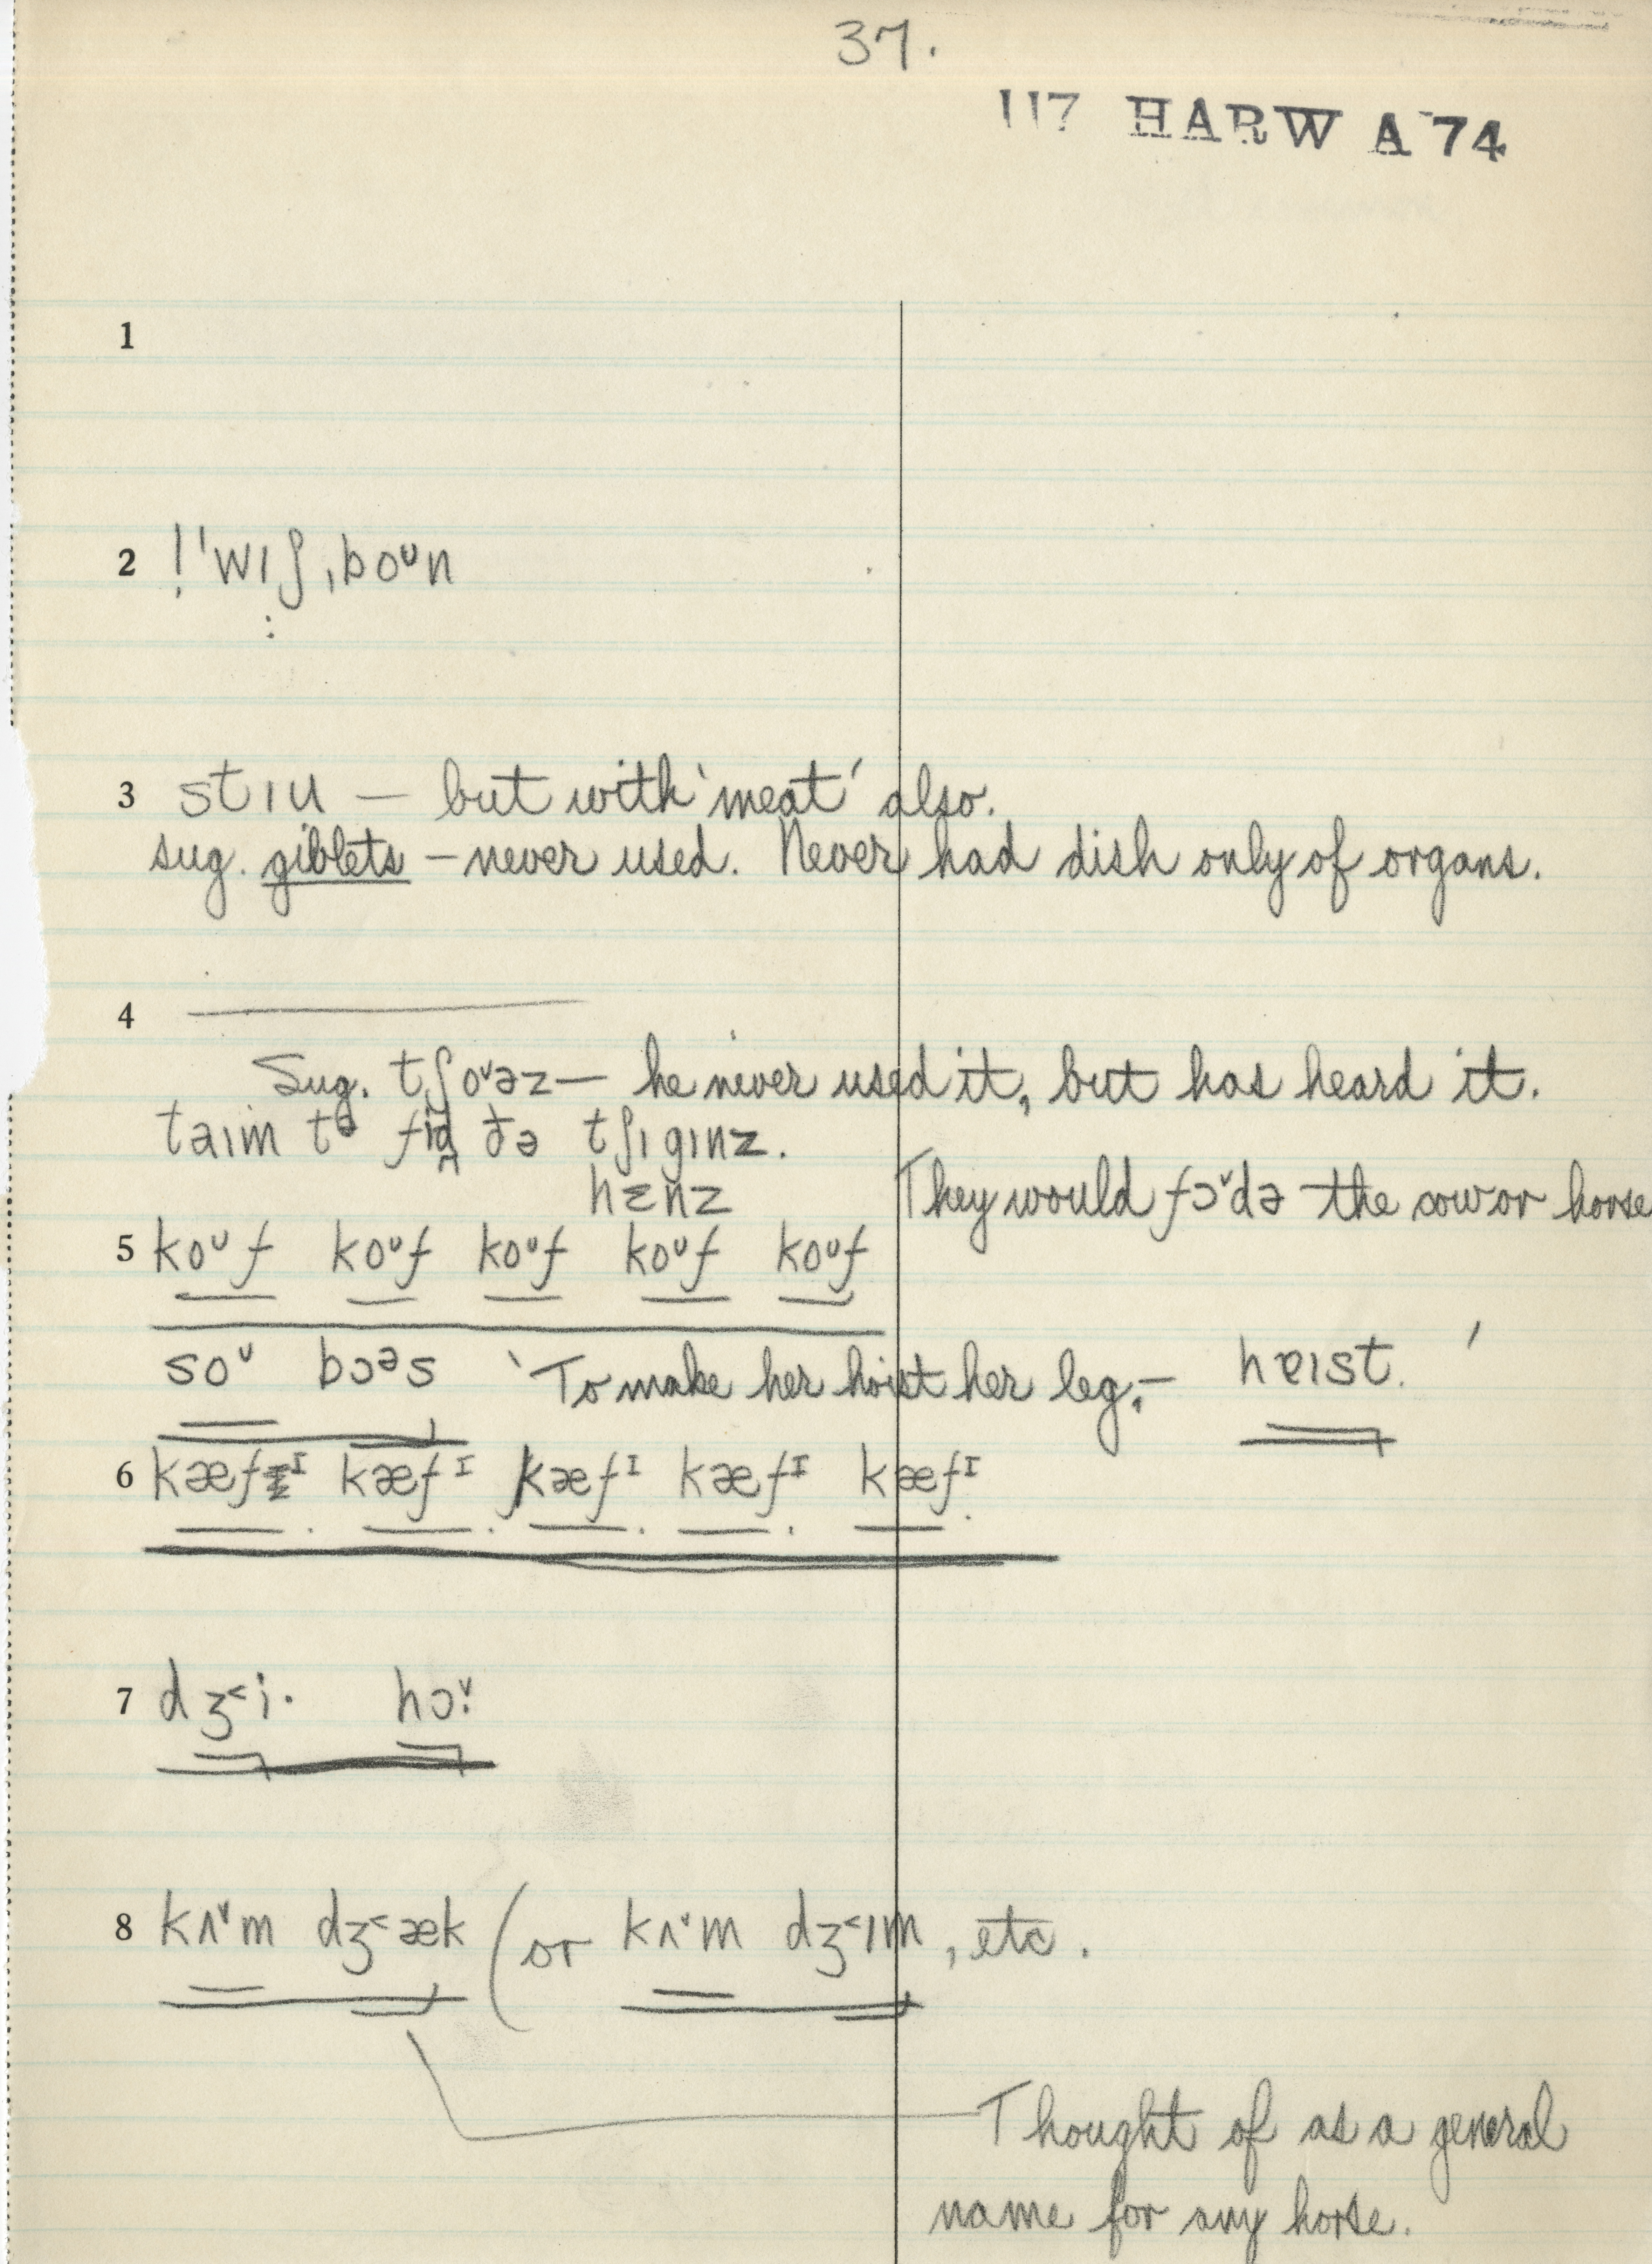 37.
117 HARW A 74
1
2 ! ˈwɪʃˌboᴜn
3 stɪu — but with 'meat' also.
sug. giblets — never used. Never had dish only of organs.
4 ———
Sug. tʃoᵛəz — he never used it, but has heard it.
taɪm tə fid ðə tʃɪgɪnz.
hɛnz They would fɔᵛdə the cow or horse
5 koᴜf koᴜf koᴜf koᴜf koᴜf
soᴜ bɔᵊs 'To make her hoist her leg, — hɐɪst.'
6 kæfᴵ kæfᴵ kæfᴵ kæfᴵ kæfᴵ
7 dʒ˂i· hɔᵛ:
8 kʌᵛm dʒ˂æk (or kʌᵛm dʒ˂ɪm, etc.
Thought of as a general
name for any horse.